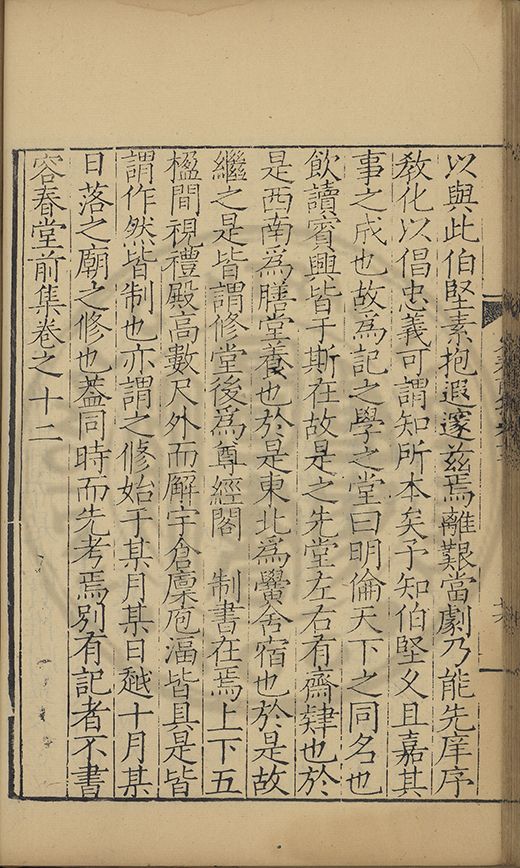 以與此伯堅素抱遐邃茲焉離艱當劇乃能先庠序
敎化以倡忠義可謂知所本矣予知伯堅乆且嘉其
事之成也故爲記之學之堂曰明倫天下之同名也
飲讀賓興皆于斯在故是之先堂左右有齋肄也於
是西南爲膳堂養也於是東北爲黌舍宿也於是故
繼之是皆謂修堂後爲尊經閣　制書在焉上下五
楹間視禮殿高數尺外而解宇倉廩庖湢皆具是皆
謂作然皆制也亦謂之修始于某月某日越十月某
日落之廟之修也葢同時而先考焉別有記者不書
容春堂前集卷之十二